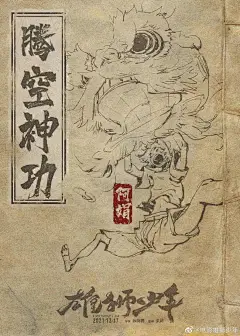 腾空神功
阿娟
雄狮少年
2021.12.17